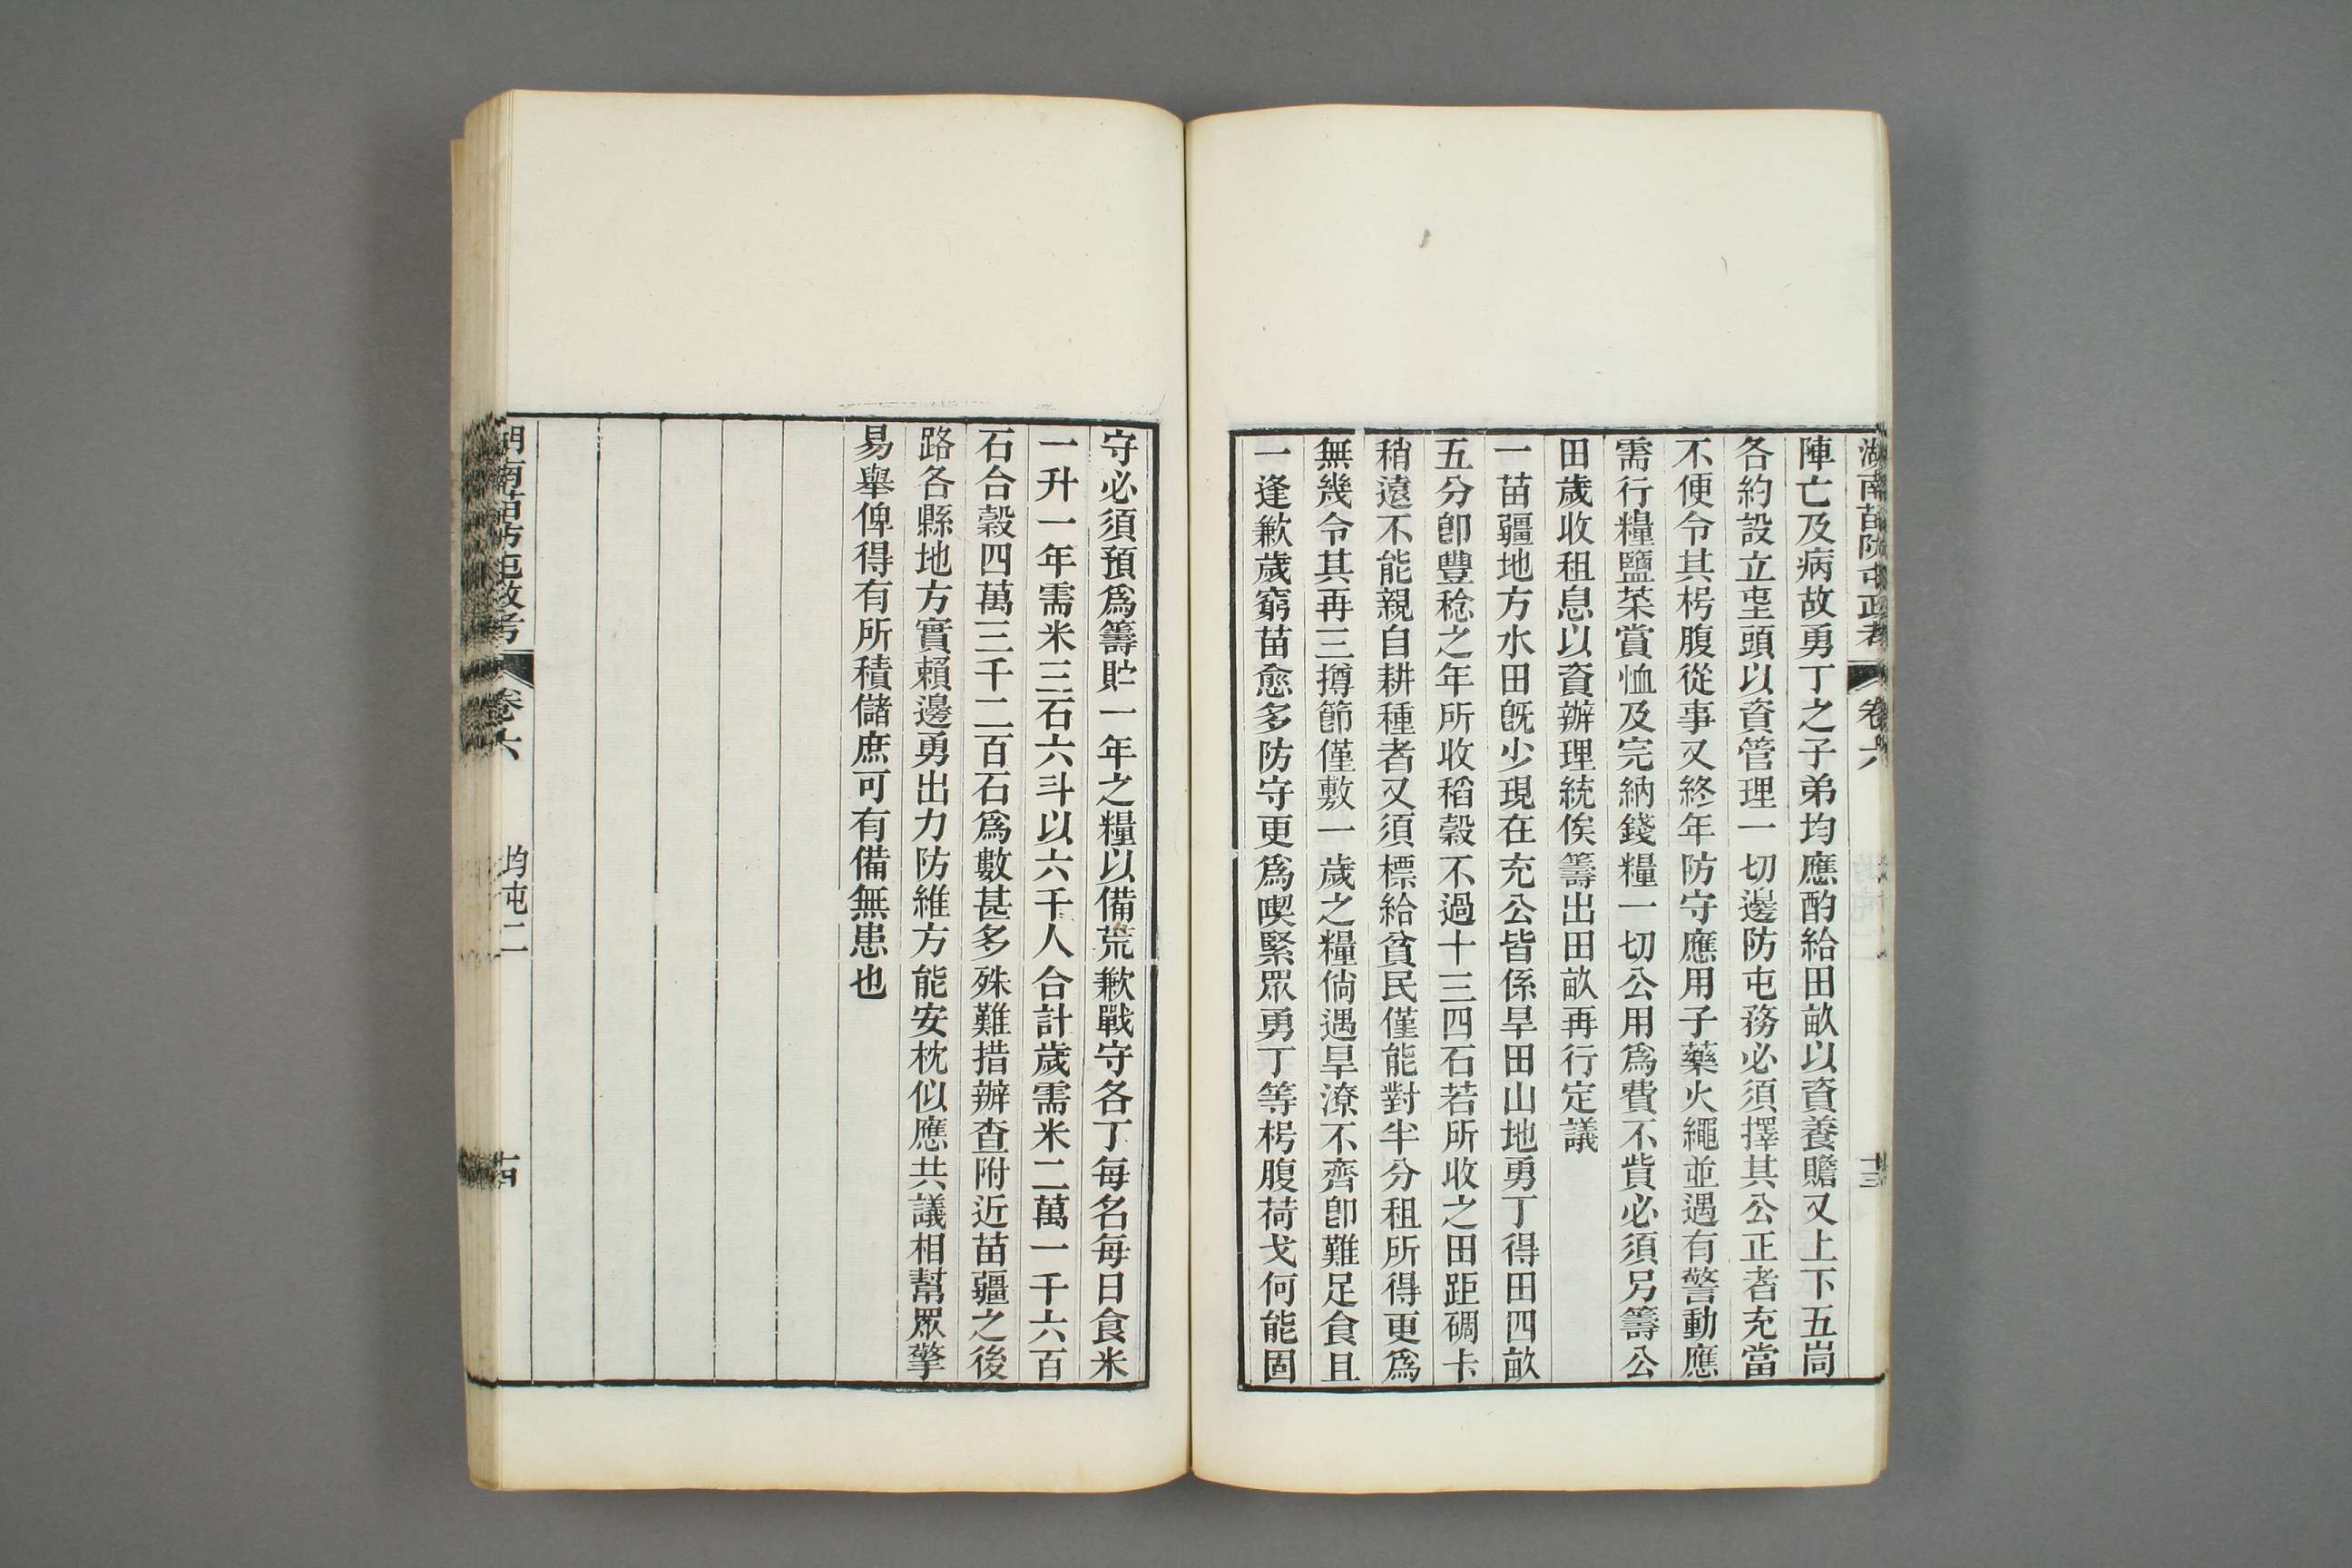 湖南苗防屯政考 卷六 十三
陣亡及病故勇丁之子弟均應酌給田畝以資養贍又上下五峝
各約設立𡉏頭以資管理一切邊防屯務必須擇其公正者充當
不便令其枵腹從事又終年防守應用子藥火繩並遇有警動應
需行糧鹽菜賞恤及完納錢糧一切公用爲費不貲必須另籌公
田歲收租息以資辦理統俟籌出田畝再行定議
一苗疆地方水田旣少現在充公皆係旱田山地勇丁得田四畝
五分卽豐稔之年所收稻穀不過十三四石若所收之田距碉卡
稍遠不能親自耕種者又須標給貧民僅能對半分租所得更爲
無幾令其再三撙節僅敷一歲之糧倘遇旱潦不齊卽難足食且
一逢歉歲窮苗愈多防守更爲喫緊眾勇丁等枵腹荷戈何能固
守必須預爲籌貯一年之糧以備荒歉戰守各丁每名每日食米
一升一年需米三石六斗以六千人合計歲需米二萬一千六百
石合穀四萬三千二百石爲數甚多殊難措辦查附近苗疆之後
路各縣地方實賴邊勇出力防維方能安枕似應共議相幫眾擎
易舉俾得有所積儲庶可有備無患也
湖南苗防屯政考 卷六 均屯二 十四